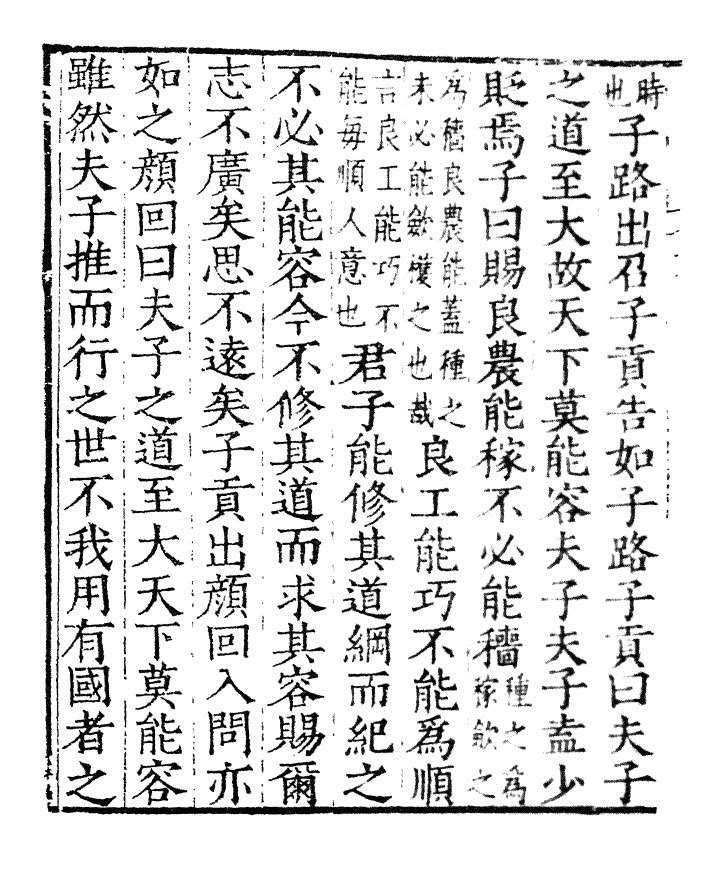 時也子路出召子貢告如子路子貢曰夫子
之道至大故天下莫能容夫子夫子盍少
貶焉子曰賜良農能稼不必能穡種之為稼歛之
為穡良農能蓋種之未必能歛穫之也哉良工能巧不能為順
言良工能巧不能每順人意也君子能修其道綱而紀之
不必其能容今不修其道而求其容賜爾
志不廣矣思不遠矣子貢出顔回入問亦
如之顔回曰夫子之道至大天下莫能容
雖然夫子推而行之世不我用有國者之